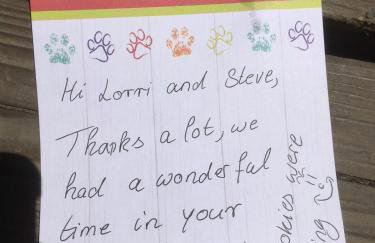 Hi Lorri and Steve,
Thanks a lot, we
had a wonderful
time in your
okies were
ng